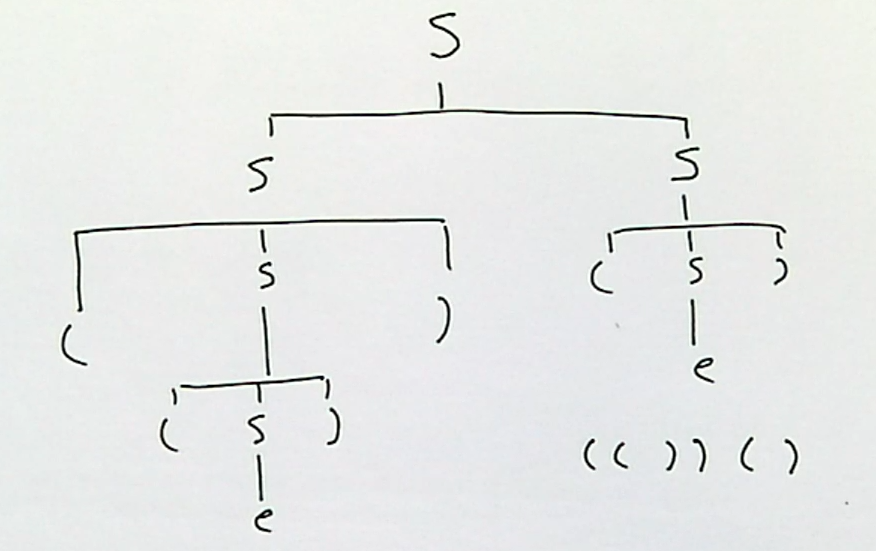 S
S S
( S ) ( S )
( S ) e
e
(( )) ( )